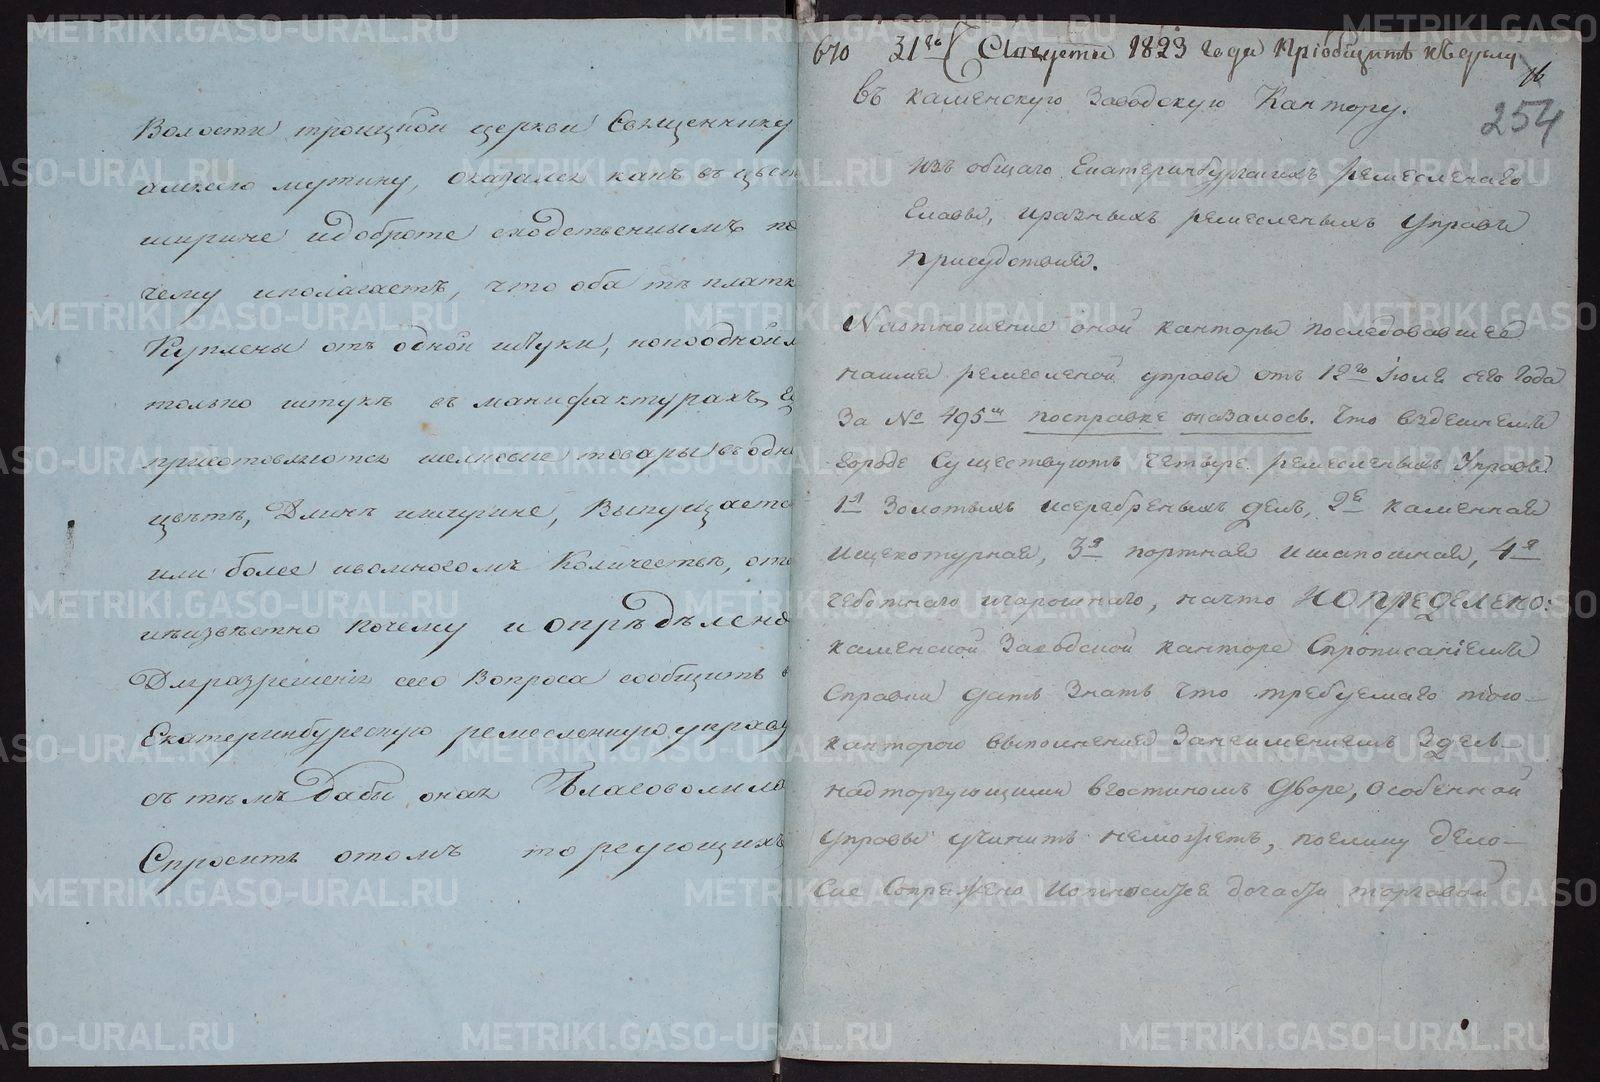 Волости троицкой церкви Священнику
алексею мутину, оказался какъ въ цвет
ширине идоброте сходственнымъ по
чему иполагаетъ, что оба тѣ платк
Куплены отъ одной штуки, но подобной
только штукъ въ манифактурахъ,
приготовляются шелковые товары въ одн
цвѣтѣ, Длинѣ иширине, Выпущаетс
или более ивомногомъ Количествѣ, ото
неизвѣстно Почему и опрѣдѣлено
Для разрешенія сего Вопроса сообщить в
Екатеринбургскую ремесленную управу
съ тѣмъ Дабы оная Благоволила
Спросить отомъ торгующихъ
670 31го Августа 1823 года Пріобщить кделу
254
въ каменскую Заводскую Кантору.
изъ общаго Екатеринбургскихъ ремесленаго
Главы, иразныхъ ремесленыхъ Управъ
Присудствия.
Наотношение оной канторы последовавшее
наимя ремесленой управы отъ 12го Июля сего года
За № 495м посправке оказалось. Что вздешнемъ
городе Существуютъ четыре ремесленыхъ Управы
1я Золотыхъ исеребреныхъ делъ, 2я каменная
ищекотурная, 3я портная ишапошная, 4я
чеботнаго ичарошнаго, начто И ОПРЕДЕЛЕНО:
каменской Заводской канторе Спрописаниемъ
Справки дать Знать что требуемаго тою
канторою выполнения Занеимениемъ Здесь
надторгующими вгостиномъ Дворе, особенной
управы учинить неможетъ, поелику дело
Сие Сопрежено иотносится дочасти торговой
METRIKI.GASO-URAL.RU